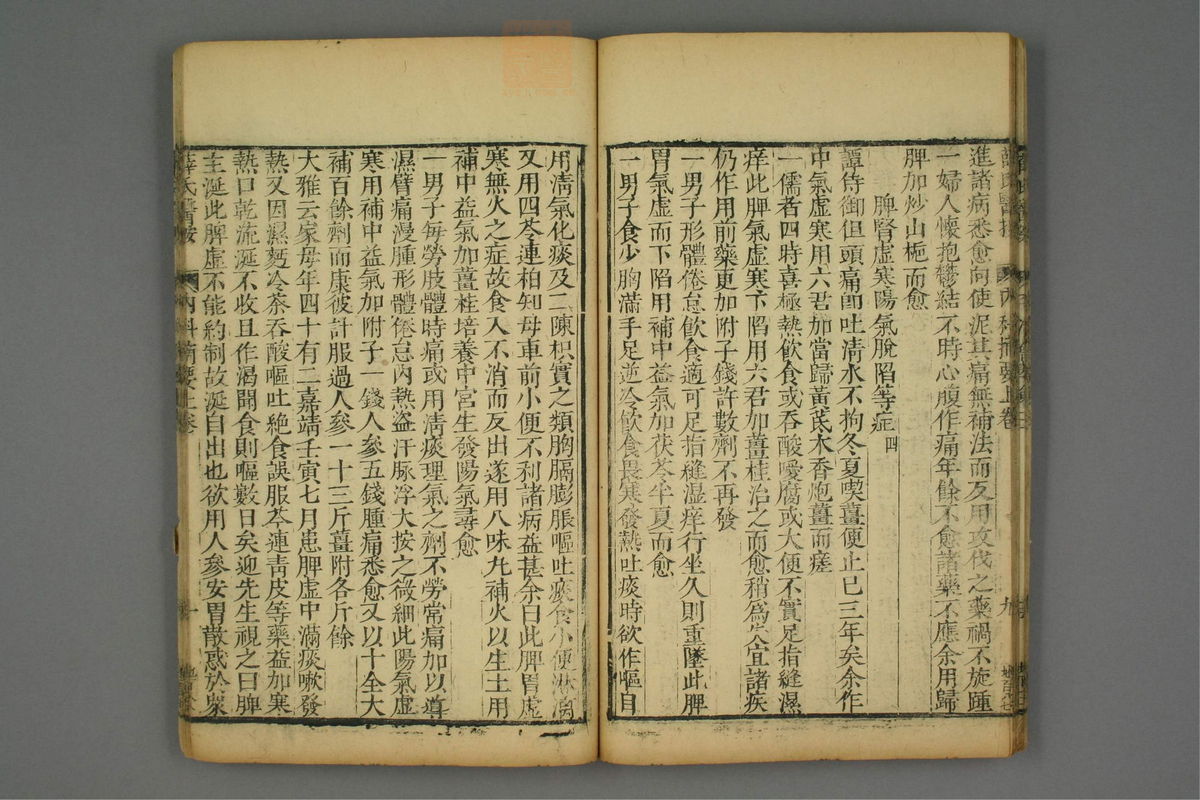 進諸病悉愈向使泥其痛無補法而反用攻伐之藥禍不旋踵
一婦人懷抱鬱結不時心腹作痛年餘不愈諸藥不應余用歸
脾加炒山梔而愈
脾腎虛寒陽氣脫陷等症 四
譚侍御但頭痛即吐清水不拘冬夏喫薑便止已三年矣余作
中氣虛寒用六君加當歸黃芪木香炮薑而瘥
一儒者四時喜極熱飲食或吞酸噯腐或大便不實足指縫濕
痒此脾氣虛寒下陷用六君加薑桂治之而愈稍為失宜諸疾
仍作用前藥更加附子錢許數劑不再發
一男子形體倦怠飲食適可足指縫湿痒行坐久則重墜此脾
胃氣虛而下陷用補中益氣加茯苓半夏而愈
一男子食少胸滿手足逆冷飲食畏寒發熱吐痰時欲作嘔自
用清氣化痰及二陳枳實之類胸膈膨脹嘔吐痰食小便淋滴
又用四苓連柏知母車前小便不利諸病益甚余曰此脾胃虛
寒無火之症故食入不消而反出遂用八味丸補火以生土用
補中益氣加薑桂培養中宮生發陽氣尋愈
一男子每勞肢體時痛或用清痰理氣之劑不勞常痛加以導
濕臂痛漫腫形體倦怠內熱盜汗脉浮大按之微細此陽氣虛
寒用補中益氣加附子一錢人參五錢腫痛悉愈又以十全大
補百餘劑而康彼計服過人參一十三斤薑附各斤餘
大雅云家母年四十有二嘉靖壬寅七月患脾虛中滿痰嗽發
熱又因濕麪冷茶吞酸嘔吐絕食誤服芩連青皮等藥益加寒
熱口乾流涎不收且作渴聞食則嘔數日矣迎先生視之曰脾
主涎此脾虛不能約制故涎自出也欲用人參安胃散惑於眾
薛氏醫按 內科摘要上卷